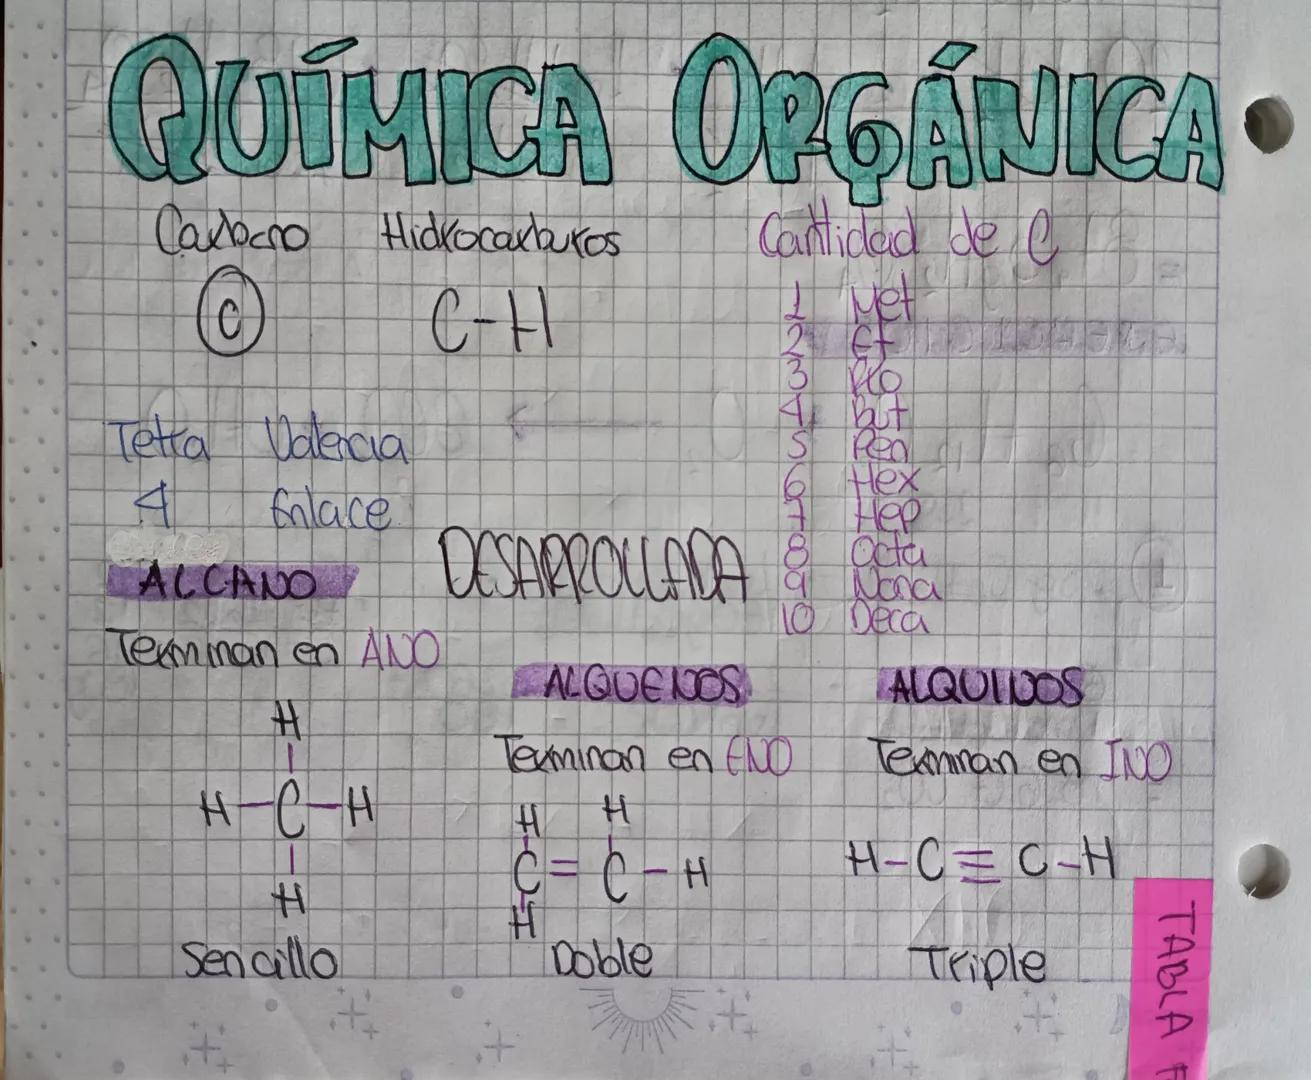 QUÍMICA ORGÁNICA
Carbono Hidrocarburos
C C-H
Cantidad de C
1 Met
2 Et
3 Pro
4 But
5 Pen
6 Hex
7 Hep
8 Octa
9 Nona
10 Deca
Tetra Valencia
4 Enlace
DESARROLLADA
ALCANO
Terminan en ANO
H
H-C-H
H
Sencillo
ALQUENOS
Terminan en ENO
H H
C=C-H
H
Doble
ALQUINOS
Terminan en INO
H-C≡C-H
Triple
TABLA